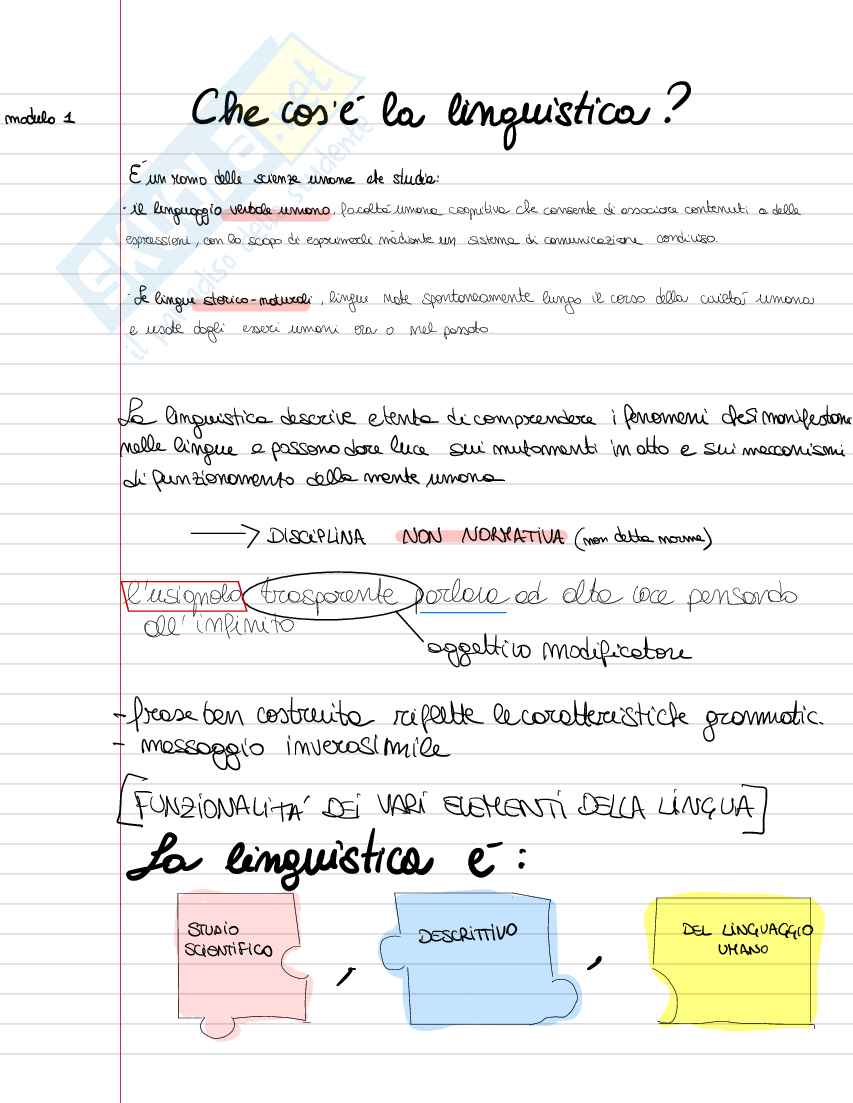 SKUOLA.net
il paradiso dello studente
modulo 1
Che cos'è la linguistica?
È un ramo delle scienze umane che studia:
· il linguaggio verbale umano, facoltà umana cognitiva che consente di associare contenuti a delle
espressioni, con lo scopo di esprimerli mediante un sistema di comunicazione condiviso.
· Le lingue storico-naturali, lingue nate spontaneamente lungo il corso della civiltà umana
e usate dagli esseri umani ora o nel passato
La linguistica descrive e tenta di comprendere i fenomeni che si manifestano
nelle lingue e possono dare luce sui mutamenti in atto e sui meccanismi
di funzionamento della mente umana
→ DISCIPLINA NON NORMATIVA (non detta norme)
l'usignolo trasparente parlava ad alta voce pensando
all'infinito
aggettivo modificatore
- frase ben costruita riflette le caratteristiche grammatic.
- messaggio inverosimile
[FUNZIONALITÀ DEI VARI ELEMENTI DELLA LINGUA]
La linguistica è:
STUDIO
SCIENTIFICO
,
DESCRITTIVO
,
DEL LINGUAGGIO
UMANO